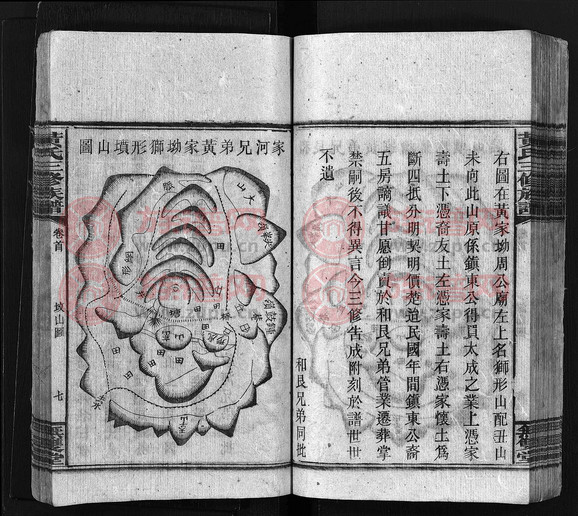 黃氏三修族譜
右圖在黃家坳周公廟左上名獅形山配丑山
未向此山原係鎮東公得買太成之業上憑家
壽土下憑裔友土左憑家壽土右憑家懷土為
斷四抵外明契明價楚迨民國年間鎮東公裔
五房謫識甘愿倒賣於和艮兄弟管業遷葬掌
禁嗣後不得異言今三修告成附刻於譜世世
不遺
和艮兄弟同批
家河兄弟黃家坳獅形墳山圖
山
田
田
田
塘
田
田
田
黃氏三修族譜
卷首
墳山圖
七